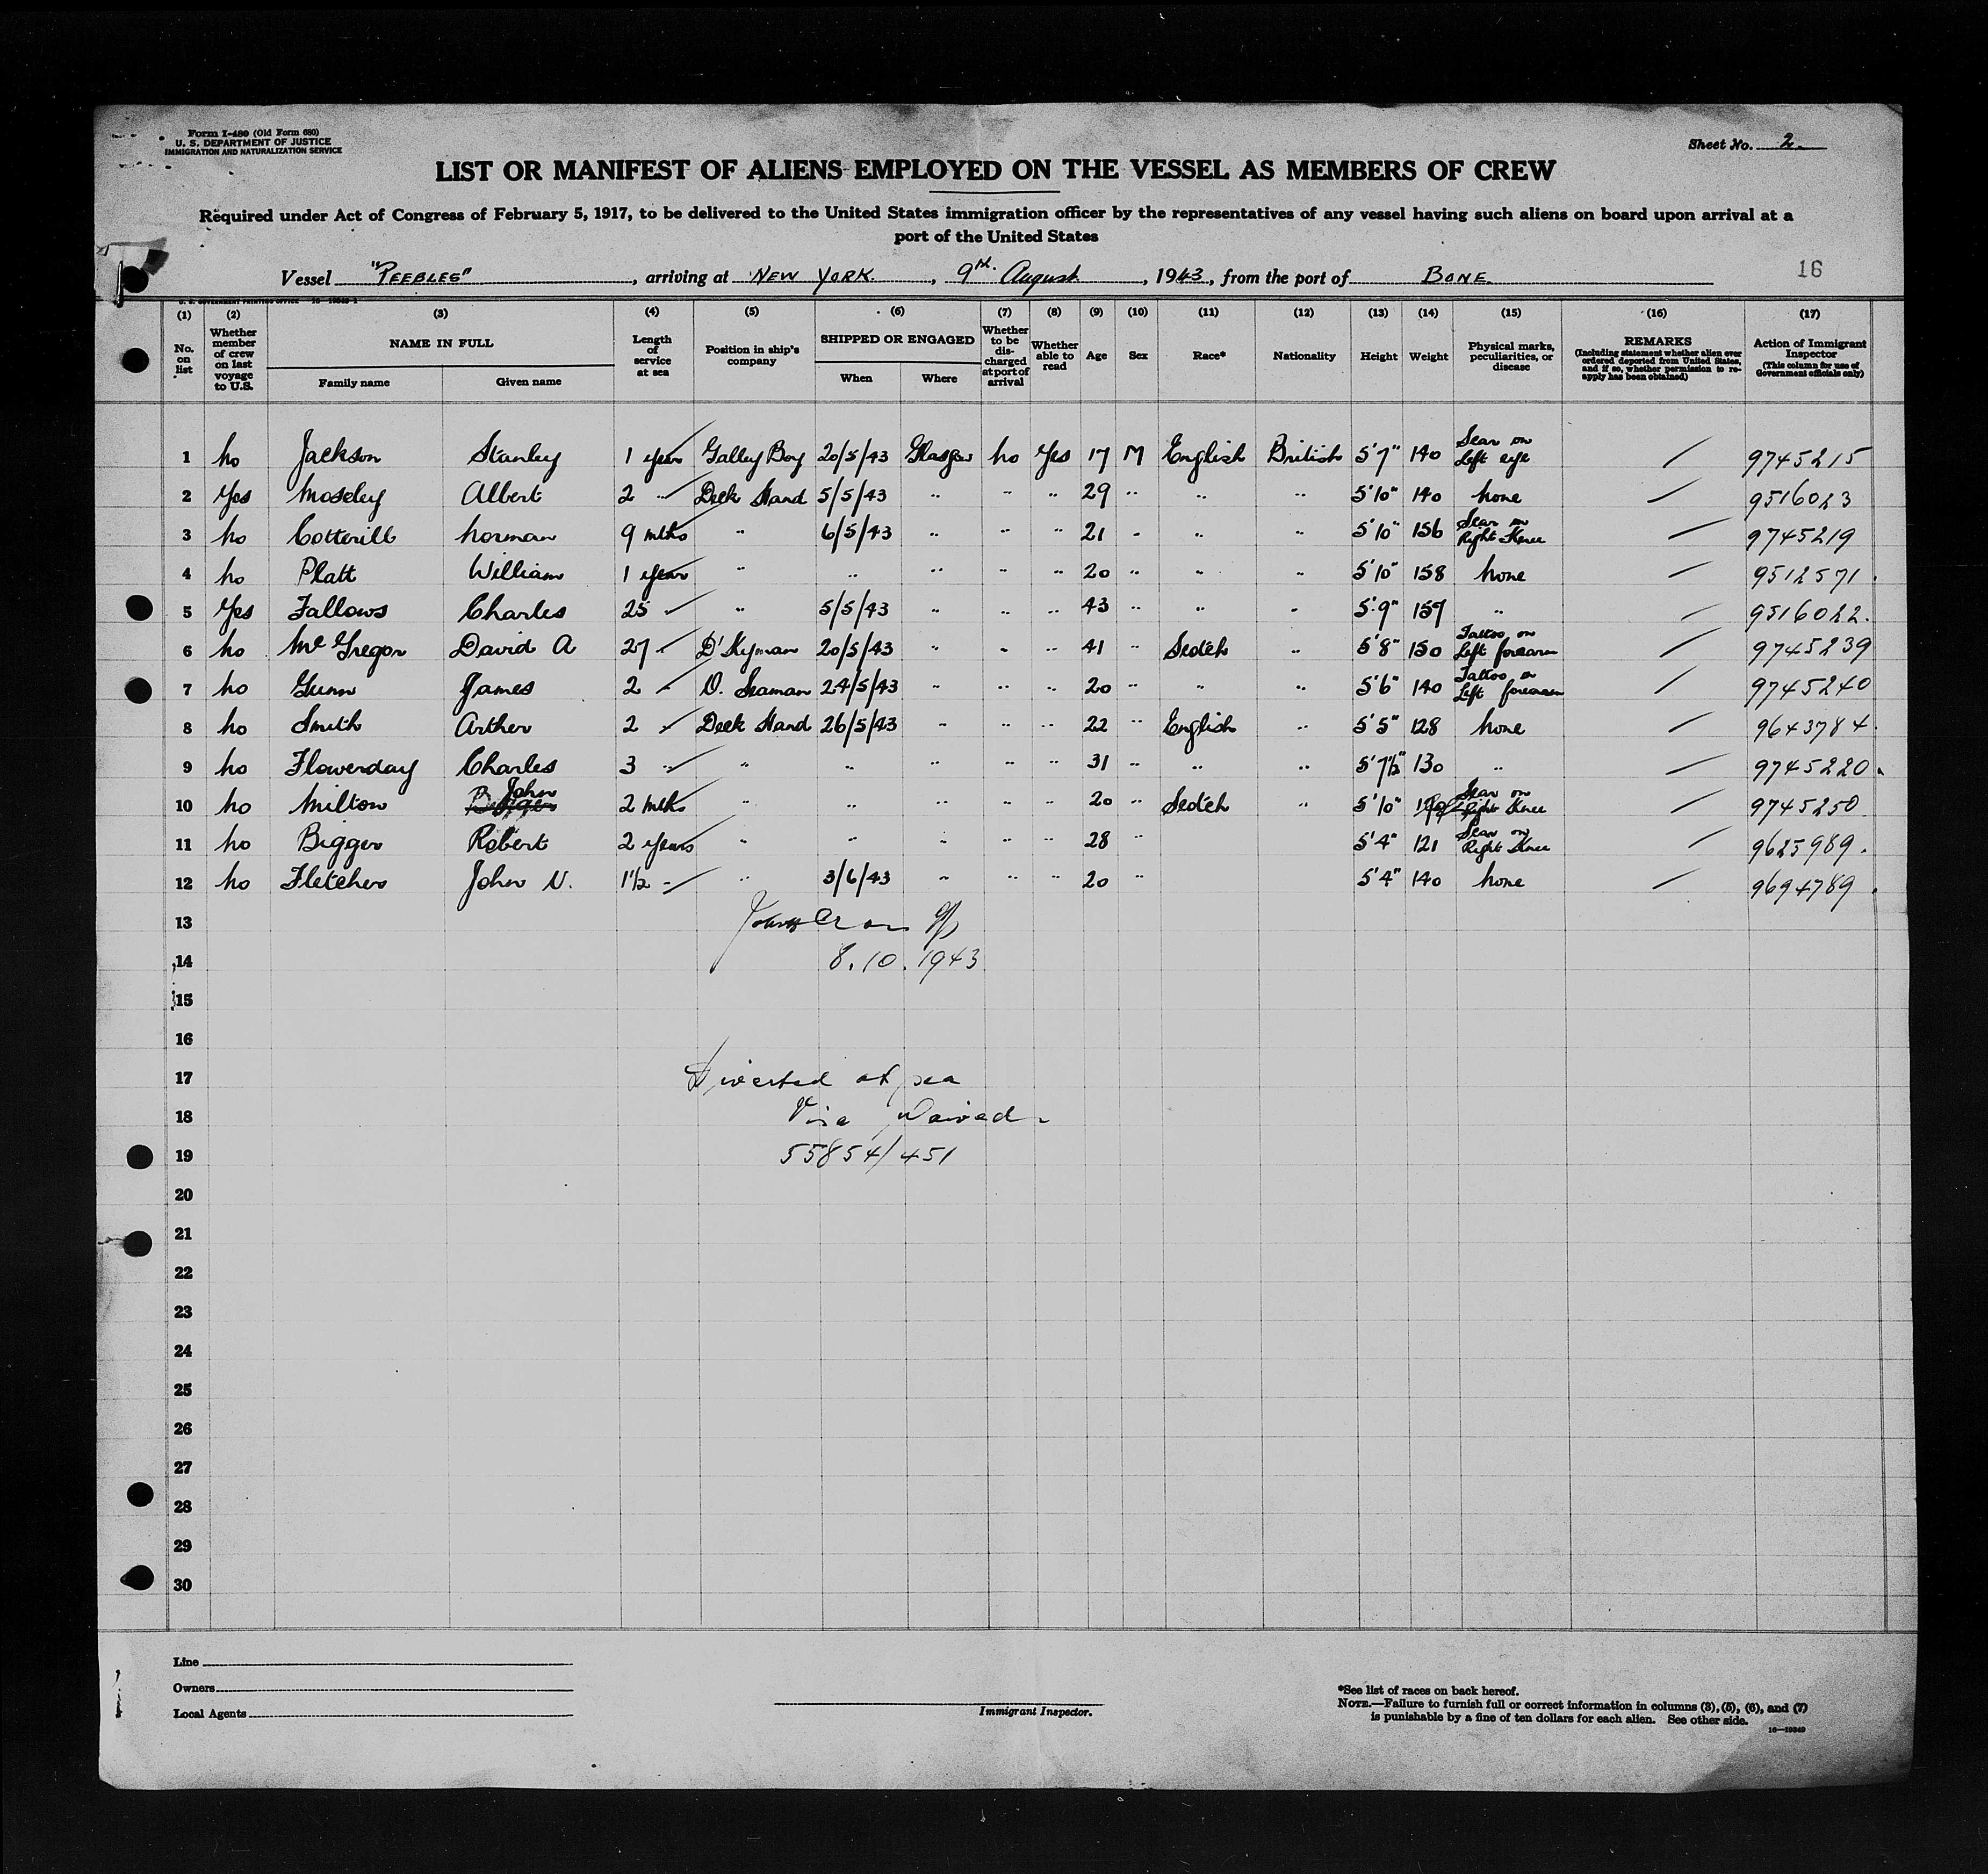 Form I-480 (Old Form 680)
U. S. DEPARTMENT OF JUSTICE
IMMIGRATION AND NATURALIZATION SERVICE
Sheet No. 2.
LIST OR MANIFEST OF ALIENS EMPLOYED ON THE VESSEL AS MEMBERS OF CREW
Required under Act of Congress of February 5, 1917, to be delivered to the United States immigration officer by the representatives of any vessel having such aliens on board upon arrival at a
port of the United States
Vessel "PEEBLES", arriving at NEW YORK., 9th. August, 1943, from the port of BONE.
16
U. S. GOVERNMENT PRINTING OFFICE
(1) (2) (3) (4) (5) (6) (7) (8) (9) (10) (11) (12) (13) (14) (15) (16) (17)
No. on list
Whether member of crew on last voyage to U.S.
NAME IN FULL
Family name
Given name
Length of service at sea
Position in ship's company
SHIPPED OR ENGAGED
When
Where
Whether to be discharged at port of arrival
Whether able to read
Age
Sex
Race*
Nationality
Height
Weight
Physical marks, peculiarities, or disease
REMARKS
(Including statement whether alien ever ordered deported from United States, and if so, whether permission to reapply has been obtained)
Action of Immigrant Inspector
(This column for use of Government officials only)
1 No Jackson Stanley 1 year Galley Boy 20/5/43 Glasgow No Yes 17 M English British 5'7" 140 Scar on Left eye 9745215
2 Yes Moseley Albert 2 " Deck Hand 5/5/43 " " " 29 " " " 5'10" 140 None 9516023
3 No Cotterill Norman 9 mths " 6/5/43 " " " 21 " " " 5'10" 156 Scar on Right Knee 9745219
4 No Platt William 1 year " " " " " 20 " " " 5'10" 158 None 9512571
5 Yes Fallows Charles 25 " 5/5/43 " " " 43 " " " 5'9" 157 " 9516022.
6 No McGregor David A 27 D'Keyman 20/5/43 " " " 41 " Scotch " 5'8" 150 Tattoo on Left forearm 9745239
7 No Gunn James 2 O. Seaman 24/5/43 " " " 20 " " " 5'6" 140 Tattoo on Left forearm 9745240
8 No Smith Arther 2 Deck Hand 26/5/43 " " " 22 " English " 5'5" 128 None 9643784.
9 No Flowerday Charles 3 " " " " " " 31 " " " 5'7½" 130 " 9745220.
10 No Milton John 2 mths " " " " " 20 " Scotch " 5'10" Scar on Right Knee 9745250
11 No Bigger Robert 2 years " " " " " 28 " 5'4" 121 Scar on Right Knee 9625989.
12 No Fletcher John N. 1½ " " 3/6/43 " " " 20 " 5'4" 140 None 9694789.
13
14 8.10.1943
15
16
17 Diverted at sea
18 Visa Waived
19 55854/451
20
21
22
23
24
25
26
27
28
29
30
Line
Owners
Local Agents
Immigrant Inspector.
*See list of races on back hereof.
NOTE.—Failure to furnish full or correct information in columns (3), (5), (6), and (7)
is punishable by a fine of ten dollars for each alien. See other side.